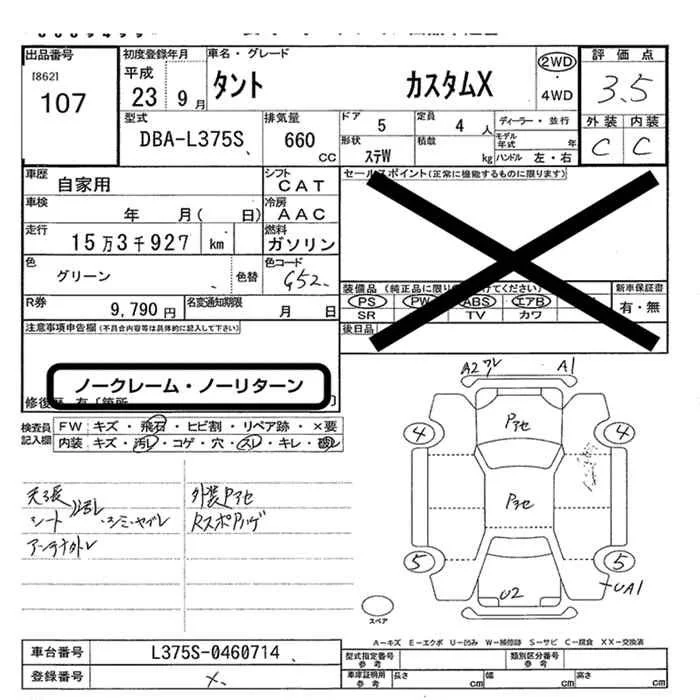 出品番号
[862]
107
初度登録年月
平成
23 9月
車名・グレード
タント カスタムX
2WD
・
4WD
評価点
3.5
外装 内装
C C
型式
DBA-L375S
排気量
660 CC
ドア
5
定員
4 人
ディーラー・並行
モデル年式 年
形状
ステW
積載
kg
ハンドル 左・右
車歴
自家用
シフト
CAT
車検
年 月( 日)
冷房
AAC
走行
15万3千927 km
燃料
ガソリン
色
グリーン
色替
色コード
G52
R券
9,790円
名変通知期限
月 日
セールスポイント(正常に機能するものに限ります)
装備品(純正品に限り
けてください)
PS PW ABS エアB
SR TV カワ
新車保証書
有・無
後日品
注意事項申告欄(不具合内容等は具体的に記入して下さい)
ノークレーム・ノーリターン
検査員記入欄
FW キズ・飛石・ヒビ割・リペア跡・×要
内装 キズ・汚レ・コゲ・穴・スレ・キレ・破レ
天張
シート
アンテナカトレ
外装Pアセ
RスポPハゲ
A2 ワレ A1
Pアセ
4 4
Pアセ
5 5
U2
UA1
スペア
A-キズ E-エクボ U-凹み W-補修跡 S-サビ C-腐食 XX-交換済
車台番号
L375S-0460714
登録番号
型式指定番号
参考
類別区分番号
参考
車庫証明用
参考
長さ cm
幅 cm
高さ cm